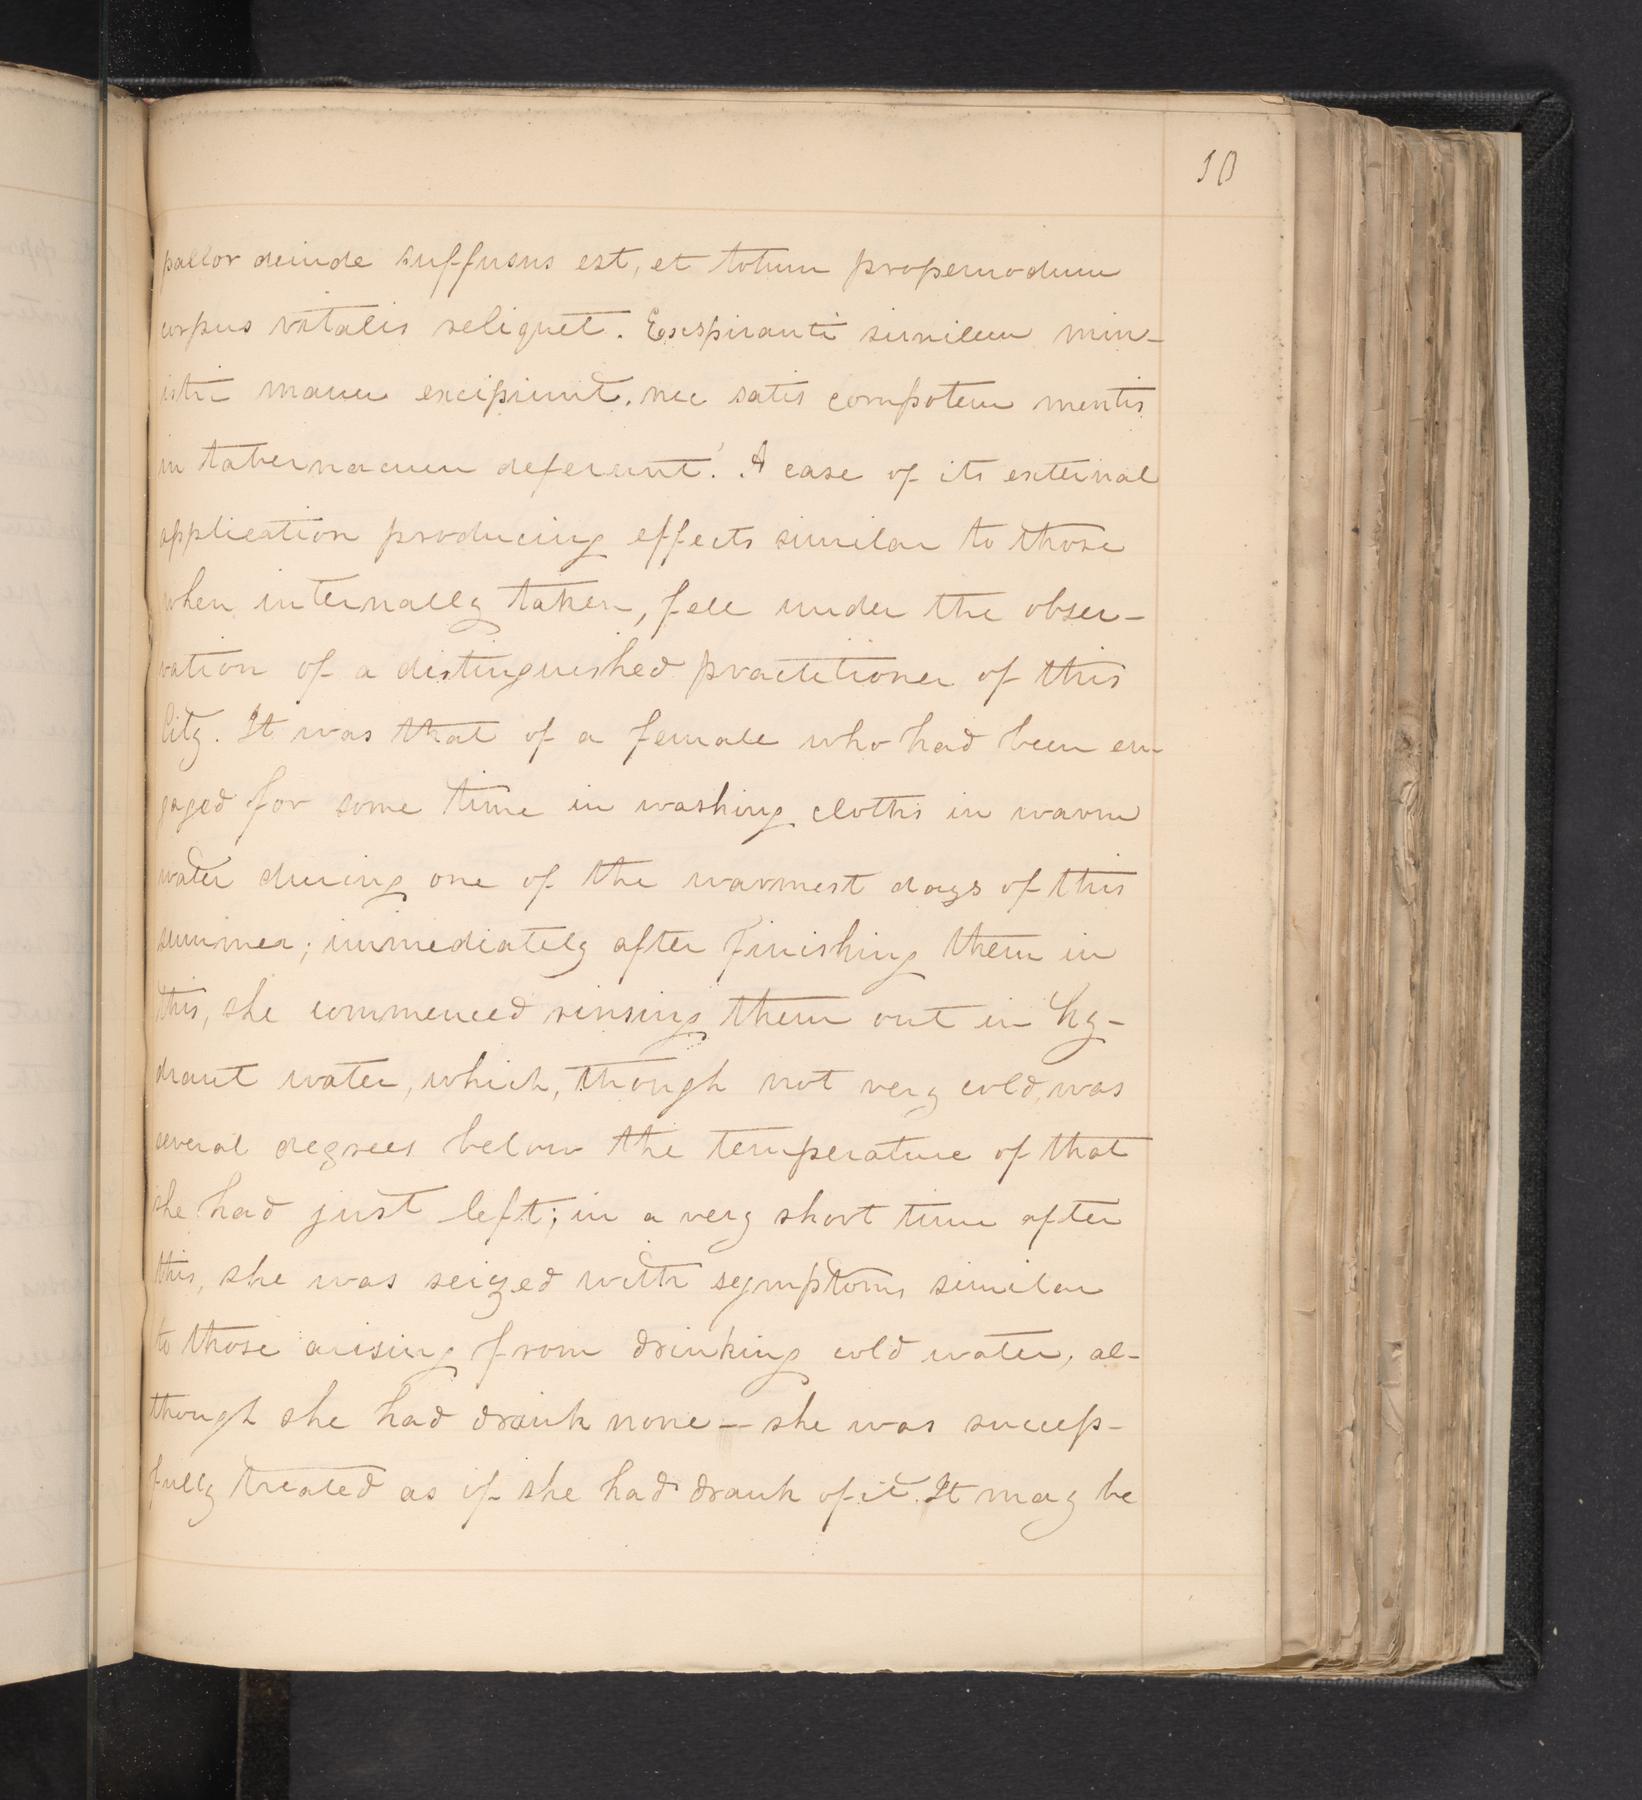 10
pallor deinde suffusus est, et totum propemodum
corpus vitalis reliquet. Exspiranti similem min-
istri manu excipiunt. nec satis compotem mentis
in tabernacum deferunt.' A case of its external
application producing effects similar to those
when internally taken, fell under the obser-
vation of a distinguished practitioner of this
City. It was that of a female who had been en
gaged for some time in washing cloths in warm
water during one of the warmest days of this
summer; immediately after finishing them in
this, she commenced rinsing them out in hy-
drant water, which, though not very cold, was
several degrees below the temperature of that
she had just left; in a very short time after
this, she was seized with symptoms similar
to those arising from drinking cold water, al-
though she had drank none — she was success-
fully treated as if she had drank of it. It may be